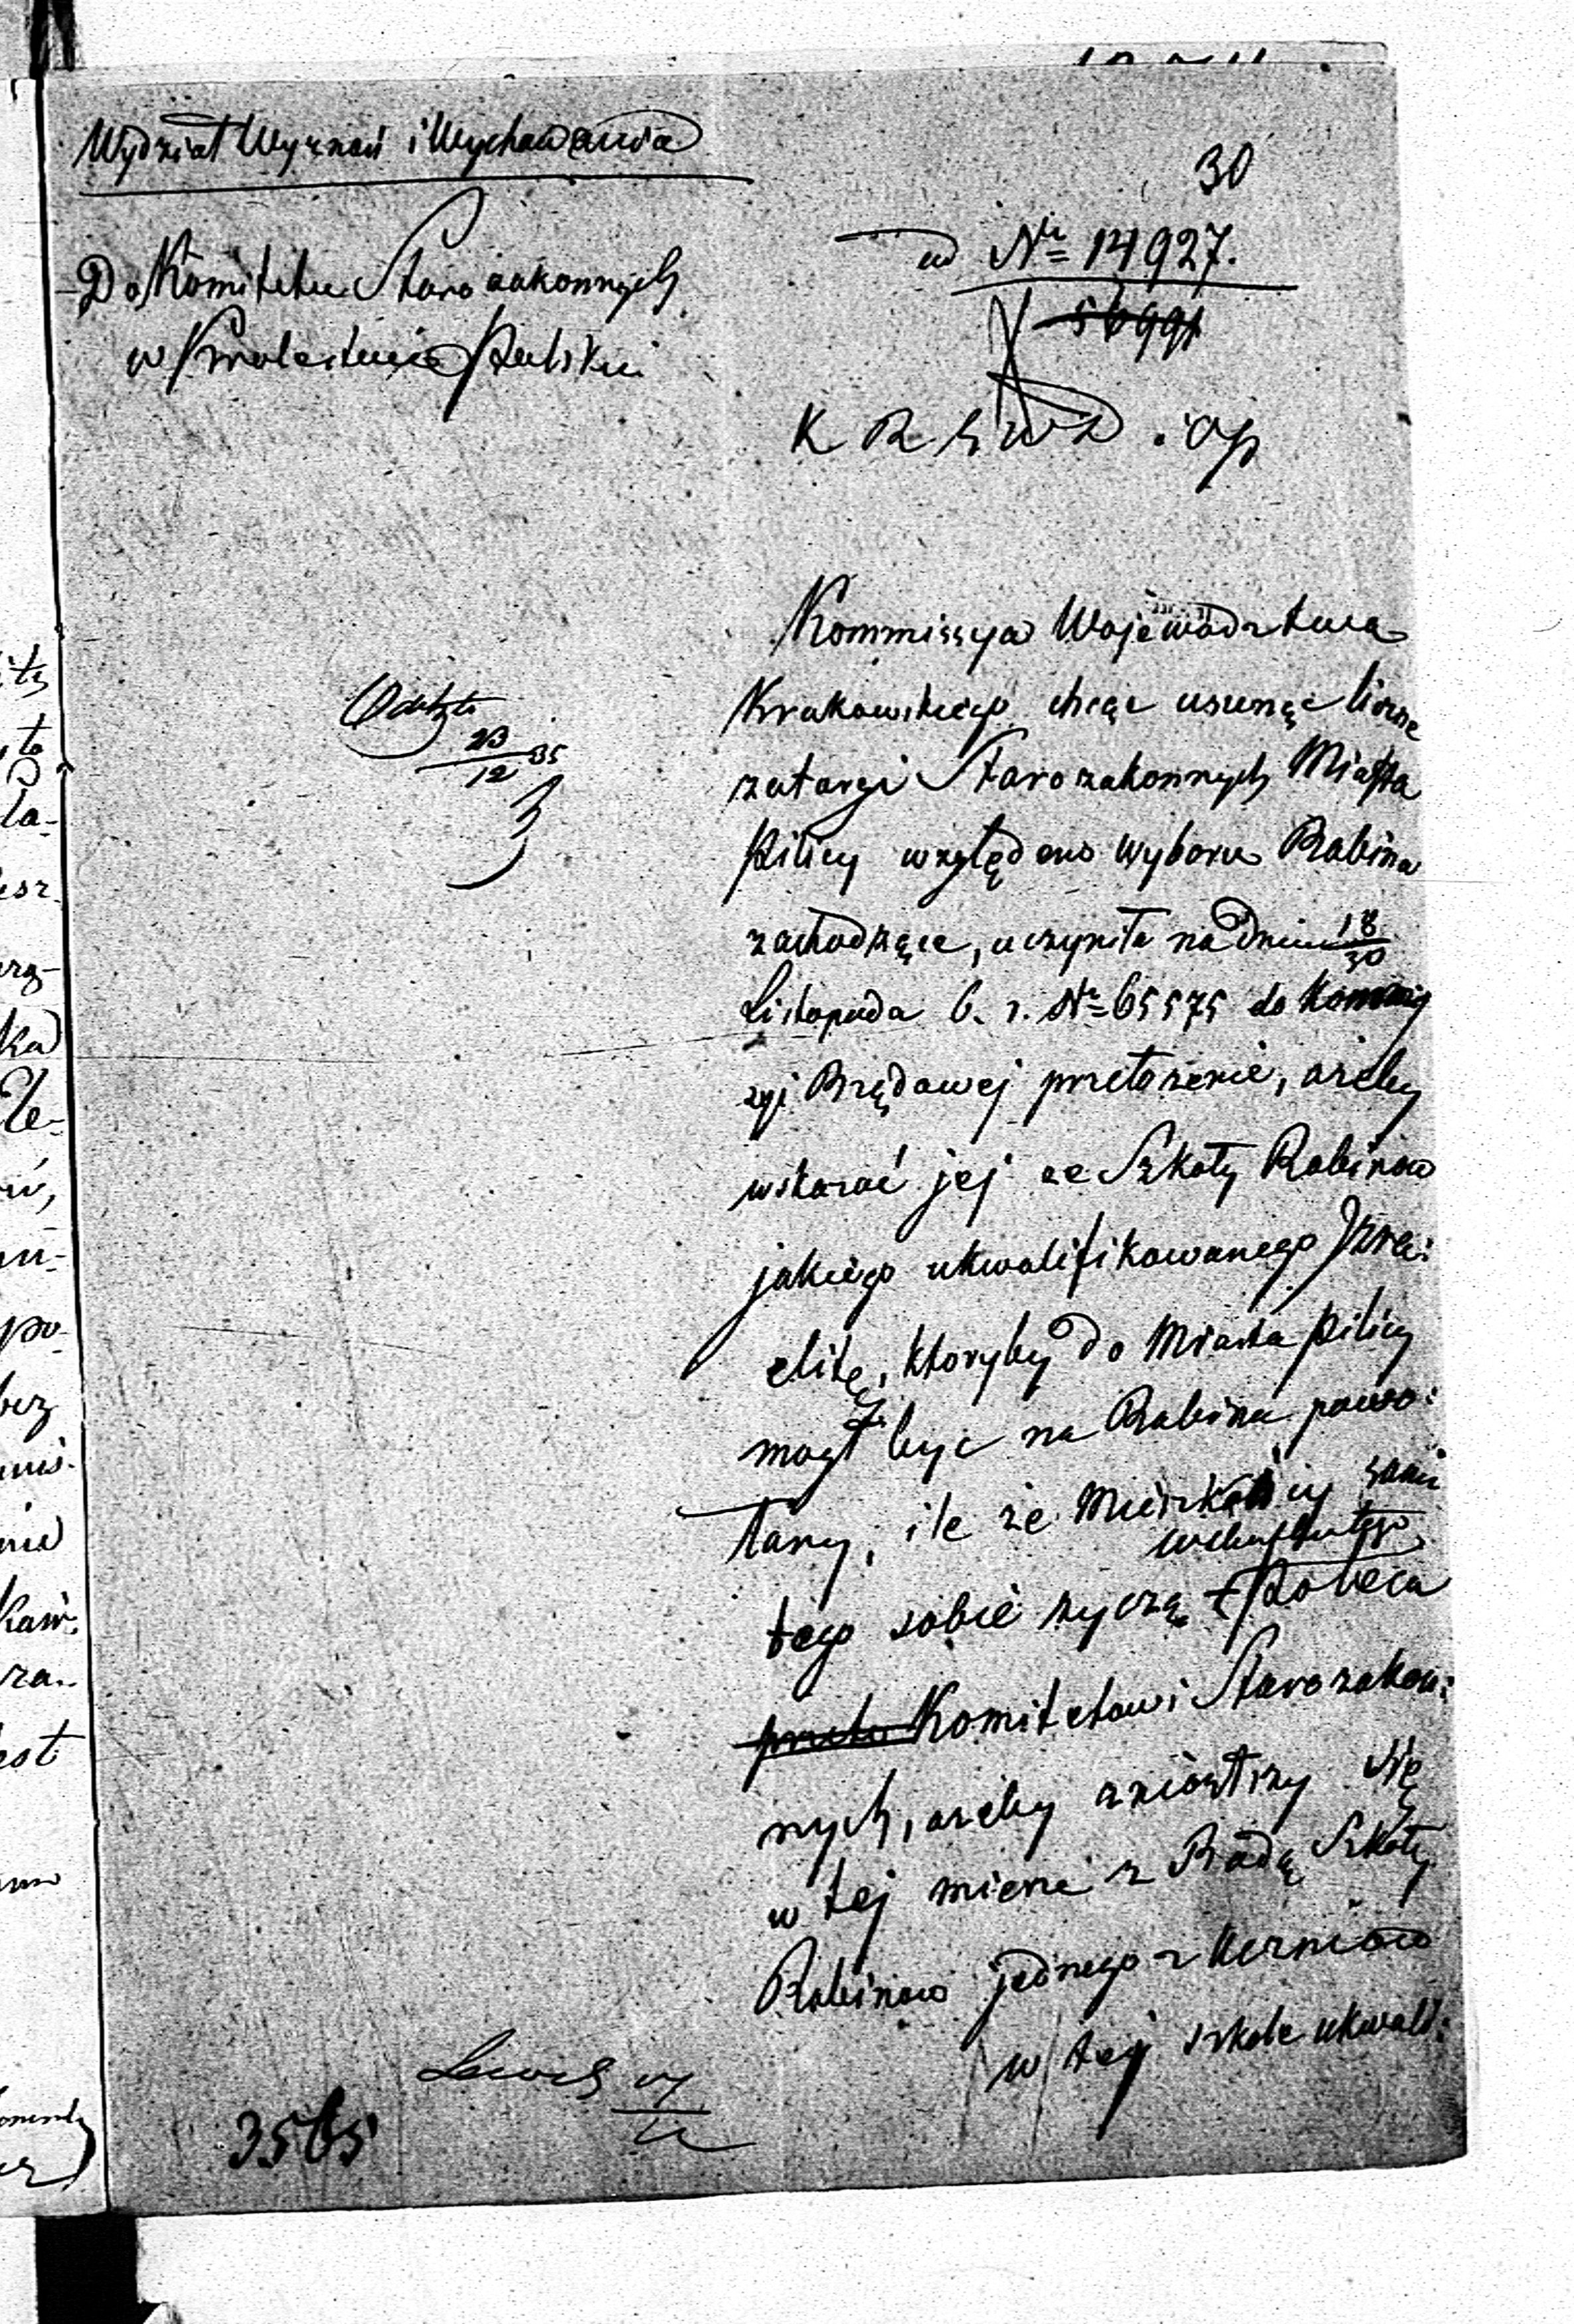 Wydział Wyznań i Wychowania
30
Do Komitetu Starozakonnych
w Królestwie Polskim
ad Nr 14927.
K R S W D i OP
Kommissya Województwa
Krakowskiego chcąc usunąć liczne
zatargi Starozakonnych Miasta
Pilicy względem wyboru Rabina
zachodzące, uczyniła na dniu 18/30
Listopada b. r. Nr 65575 do Kommis
syi Rządowej przełożenie, ażeby
wskazać jej ze Szkoły Rabinów
jakiego ukwalifikowanego Izra:
elitę, ktoryby do Miasta Pilicy
mogł być na Rabina powo:
łany, ile że Mieszkańcy sami
tego sobie życzą Poleca
wskutek tego
przeto Komitetowi Starozakon:
nych, ażeby zniósłszy się
w tej mierze z Radą Szkoły
Rabinów jednego z Uczniów
w tej szkole ukwali:
Odeszło
23/12 35
3565